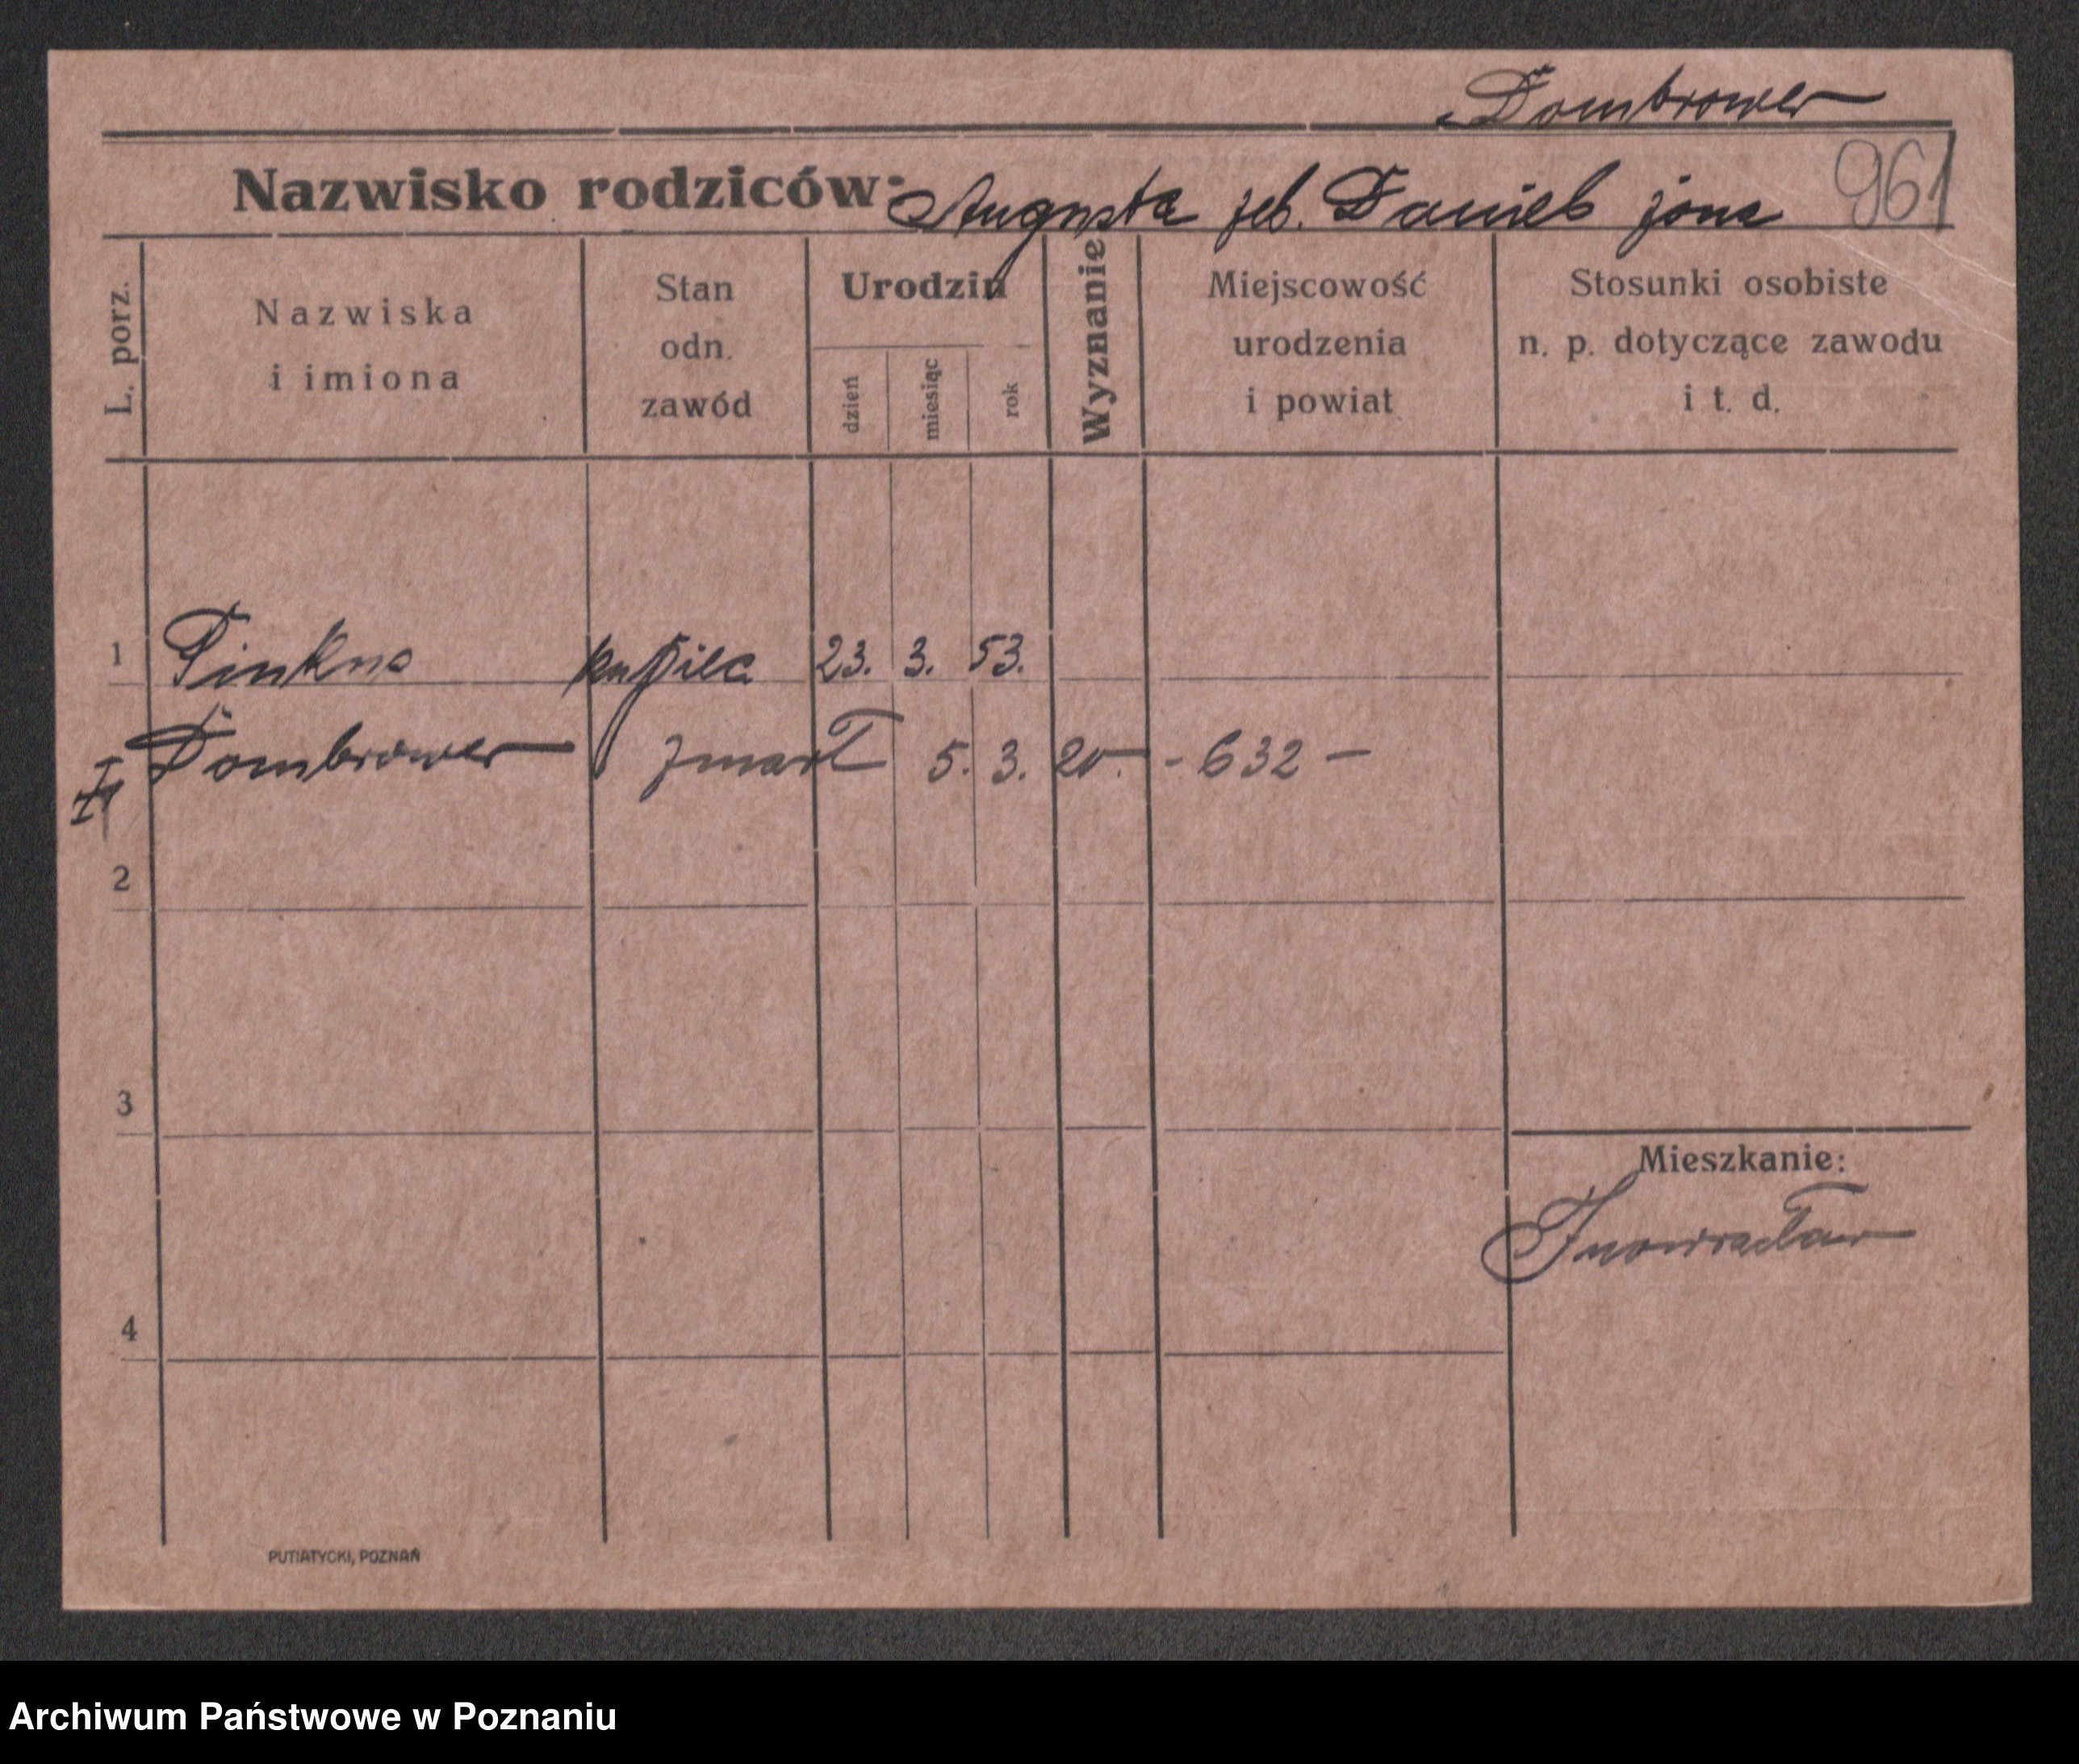 Dombrower
Nazwisko rodziców: Augusta geb. Daniels żona 961
L. porz.
Nazwiska
i imiona
Stan
odn.
zawód
Urodzin
dzień
miesiąc
rok
Wyznanie
Miejscowość
urodzenia
i powiat
Stosunki osobiste
n. p. dotyczące zawodu
i t. d.
1 Pinkus kupiec 23. 3. 53.
Dombrower zmarł 5. 3. 20. - 632 -
2
3
Mieszkanie:
Inowrocław
4
PUTIATYCKI, POZNAŃ
Archiwum Państwowe w Poznaniu